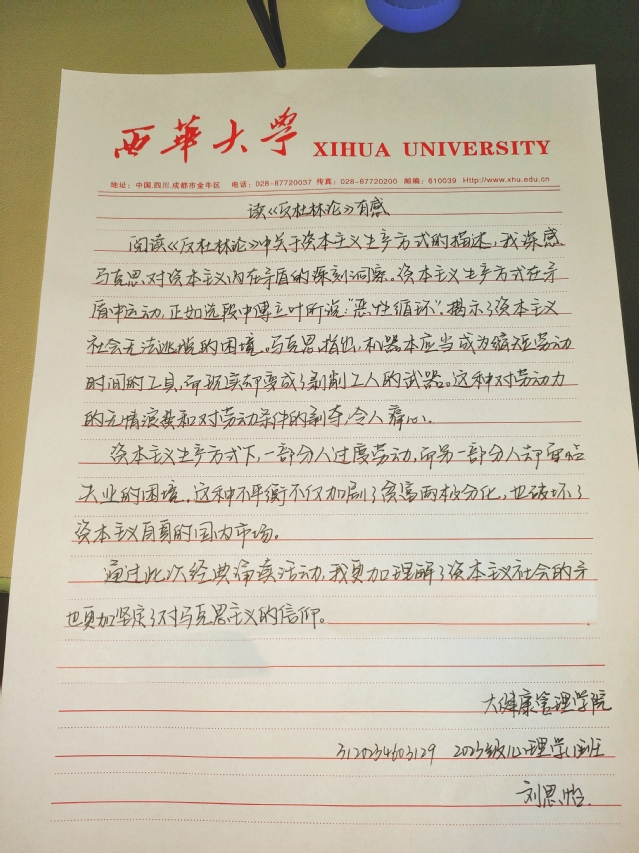 西華大學 XIHUA UNIVERSITY
地址：中国.四川.成都市金牛区 电话：028-87720037 传真：028-87720200 邮编：610039 Http://www.xhu.edu.cn
读《反杜林论》有感
阅读《反杜林论》中关于资本主义生产方式的描述，我深感
马克思对资本主义内在矛盾的深刻洞察。资本主义生产方式在矛
盾中运动，正如选段中傅立叶所说："恶性循环"。揭示了资本主义
社会无法逃脱的困境。马克思指出，机器本应当成为缩短劳动
时间的工具，而现实却变成了剥削工人的武器。这种对劳动力
的无情浪费和对劳动条件的剥夺，令人寒心。
资本主义生产方式下，一部分人过度劳动，而另一部分人却面临
失业的困境。这种不平衡不仅加剧了贫富两极分化，也破坏了
资本主义自身的国内市场。
通过此次经典诵读活动，我更加理解了资本主义社会的矛
也更加坚定了对马克思主义的信仰。
大健康管理学院
3120234603129 2023级心理学1班
刘思怡